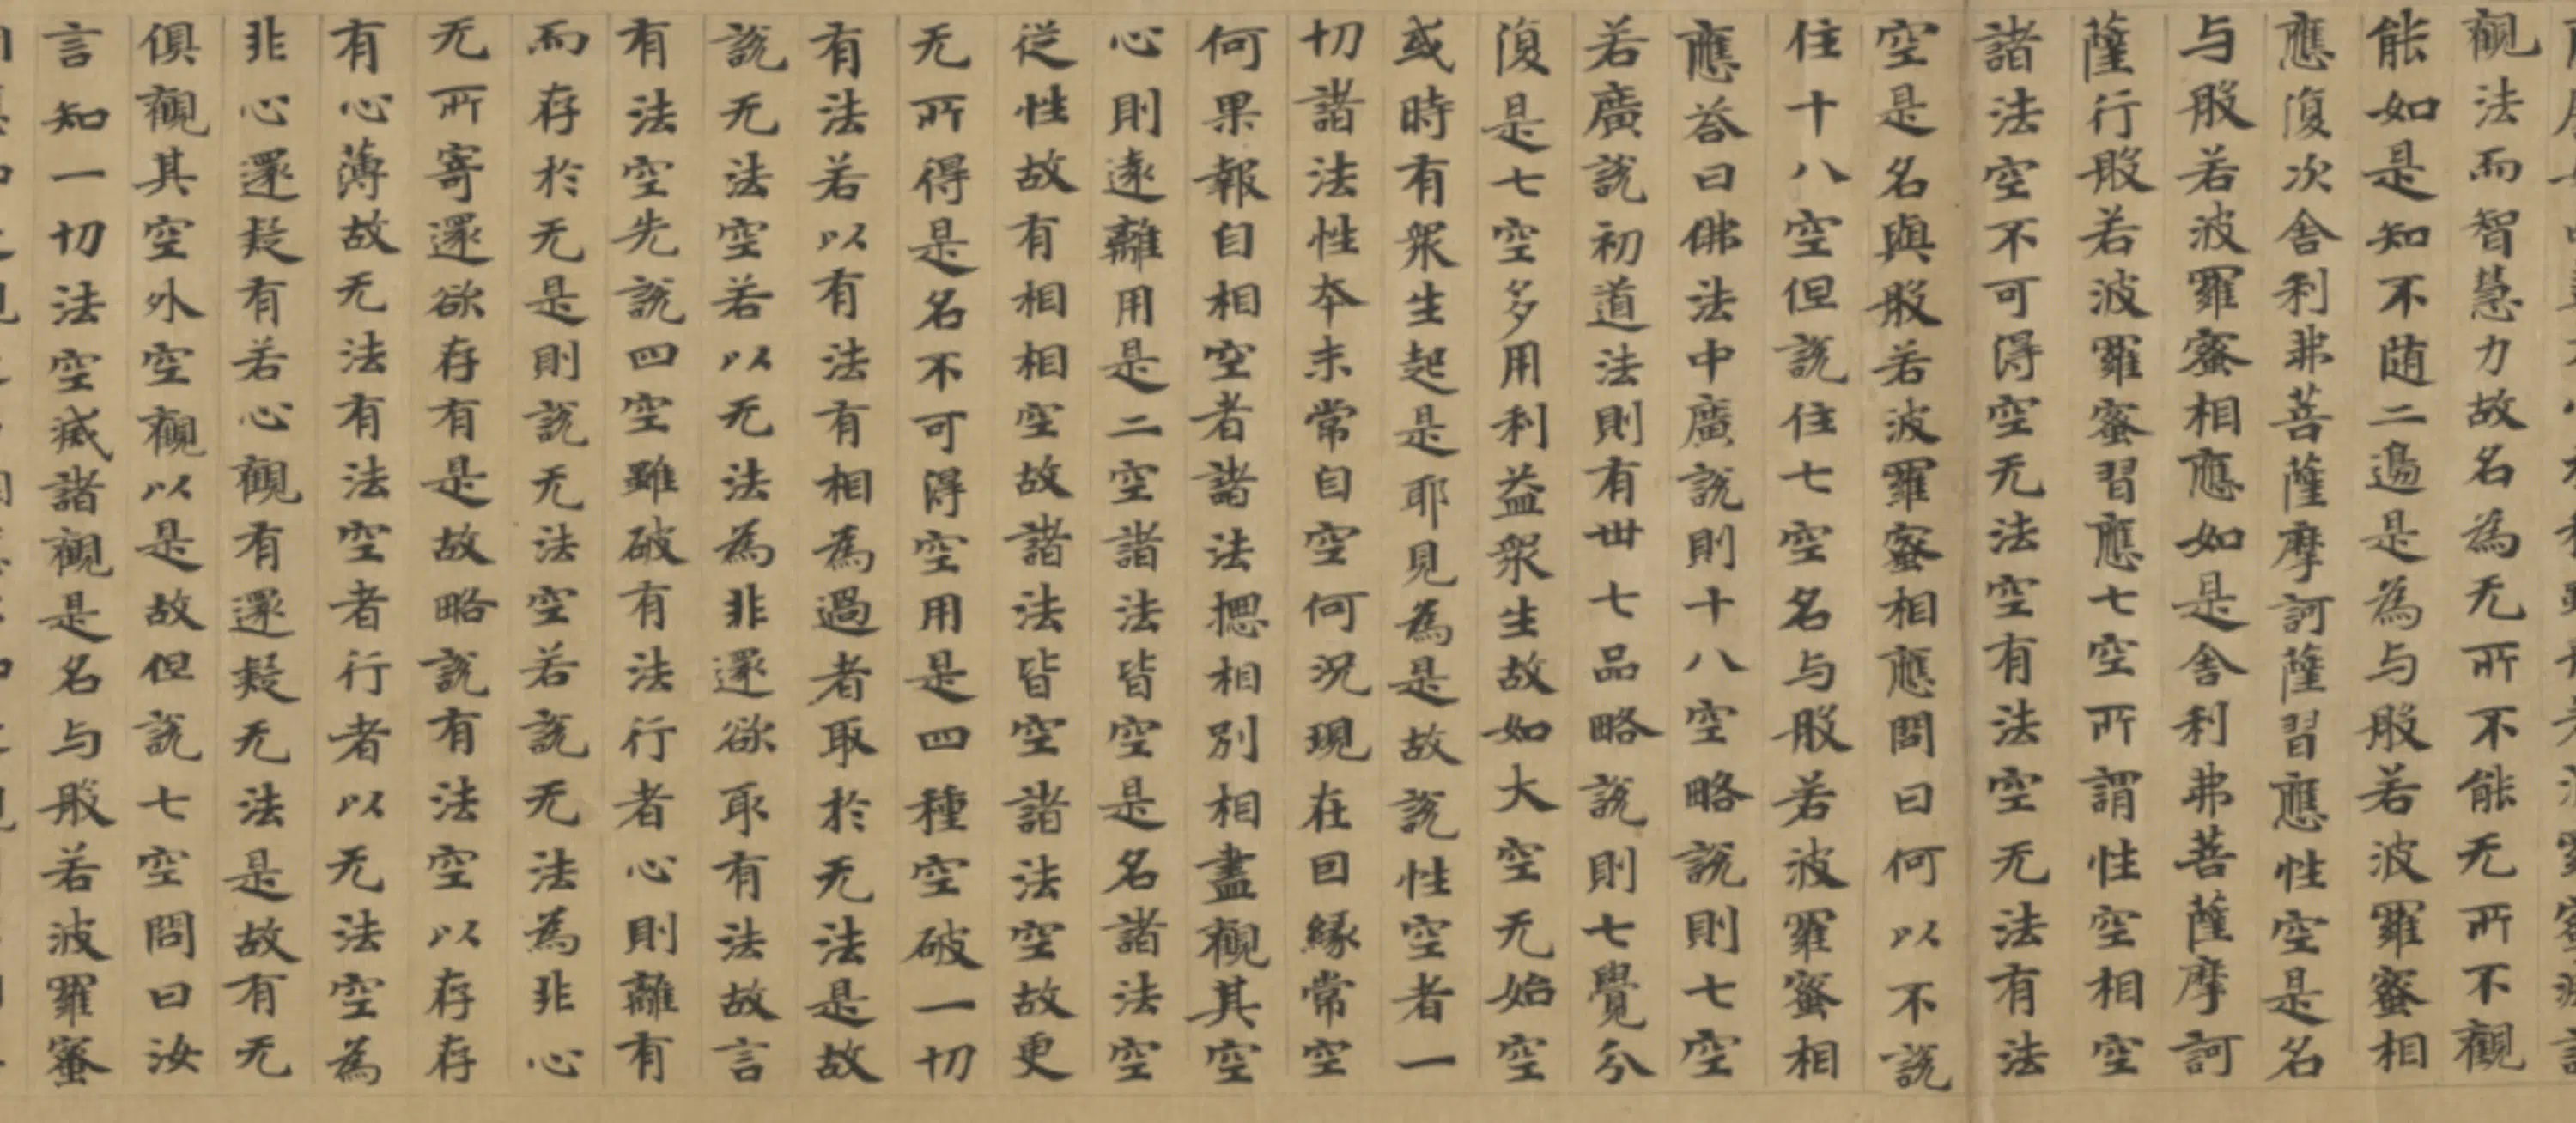 觀法而智慧力故名為无所不能无所不觀
能如是知不随二邊是為与般若波羅蜜相
應復次舎利弗菩薩摩訶薩習應性空是名
与般若波羅蜜相應如是舎利弗菩薩摩訶
薩行般若波羅蜜習應七空所謂性空相空
諸法空不可得空无法空有法空无法有法
空是名與般若波羅蜜相應問曰何以不說
住十八空但說住七空名与般若波羅蜜相
應荅曰佛法中廣說則十八空略說則七空
若廣說初道法則有丗七品略說則七覺分
復是七空多用利益衆生故如大空无始空
或時有衆生起是耶見為是故說性空者一
切諸法性夲末常自空何況現在囙緣常空
何果報自相空者諸法揔相別相盡觀其空
心則遠離用是二空諸法皆空是名諸法空
從性故有相相空故諸法皆空諸法空故更
无所得是名不可得空用是四種空破一切
有法若以有法有相為過者取於无法是故
說无法空若以无法為非還欲取有法故言
有法空先說四空雖破有法行者心則離有
而存於无是則說无法空若說无法為非心
无所寄還欲存有是故略說有法空以存存
有心薄故无法有法空者行者以无法空為
非心還疑有若心觀有還疑无法是故有无
俱觀其空外空觀以是故但說七空問曰汝
言知一切法空滅諸觀是名与般若波羅蜜